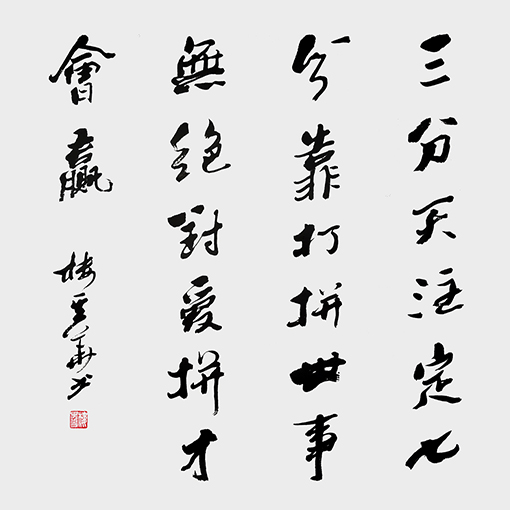 三分天注定七
分靠打拼世事
無絕對愛拼才
會贏